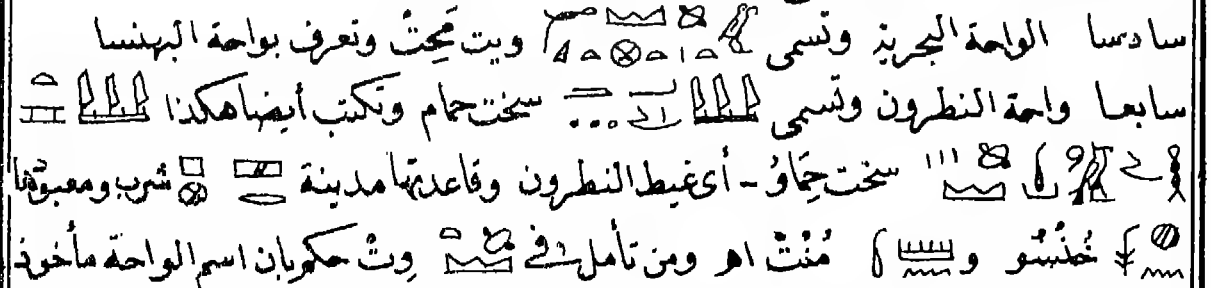 سادسا الواحة البحرية وتسمى ويت مَحِتْ وتعرف بواحة البهنسا
سابعا واحة النطرون وتسمى سخت حمام وتكتب أيضا هكذا
سخت حِمَاوُ - أى غيط النطرون وقاعدتها مدينة شرب ومعبودها
خُنْسُو و مُنْتْ اهـ ومن تأمل فى وِتْ حكم بان اسم الواحة مأخوذ